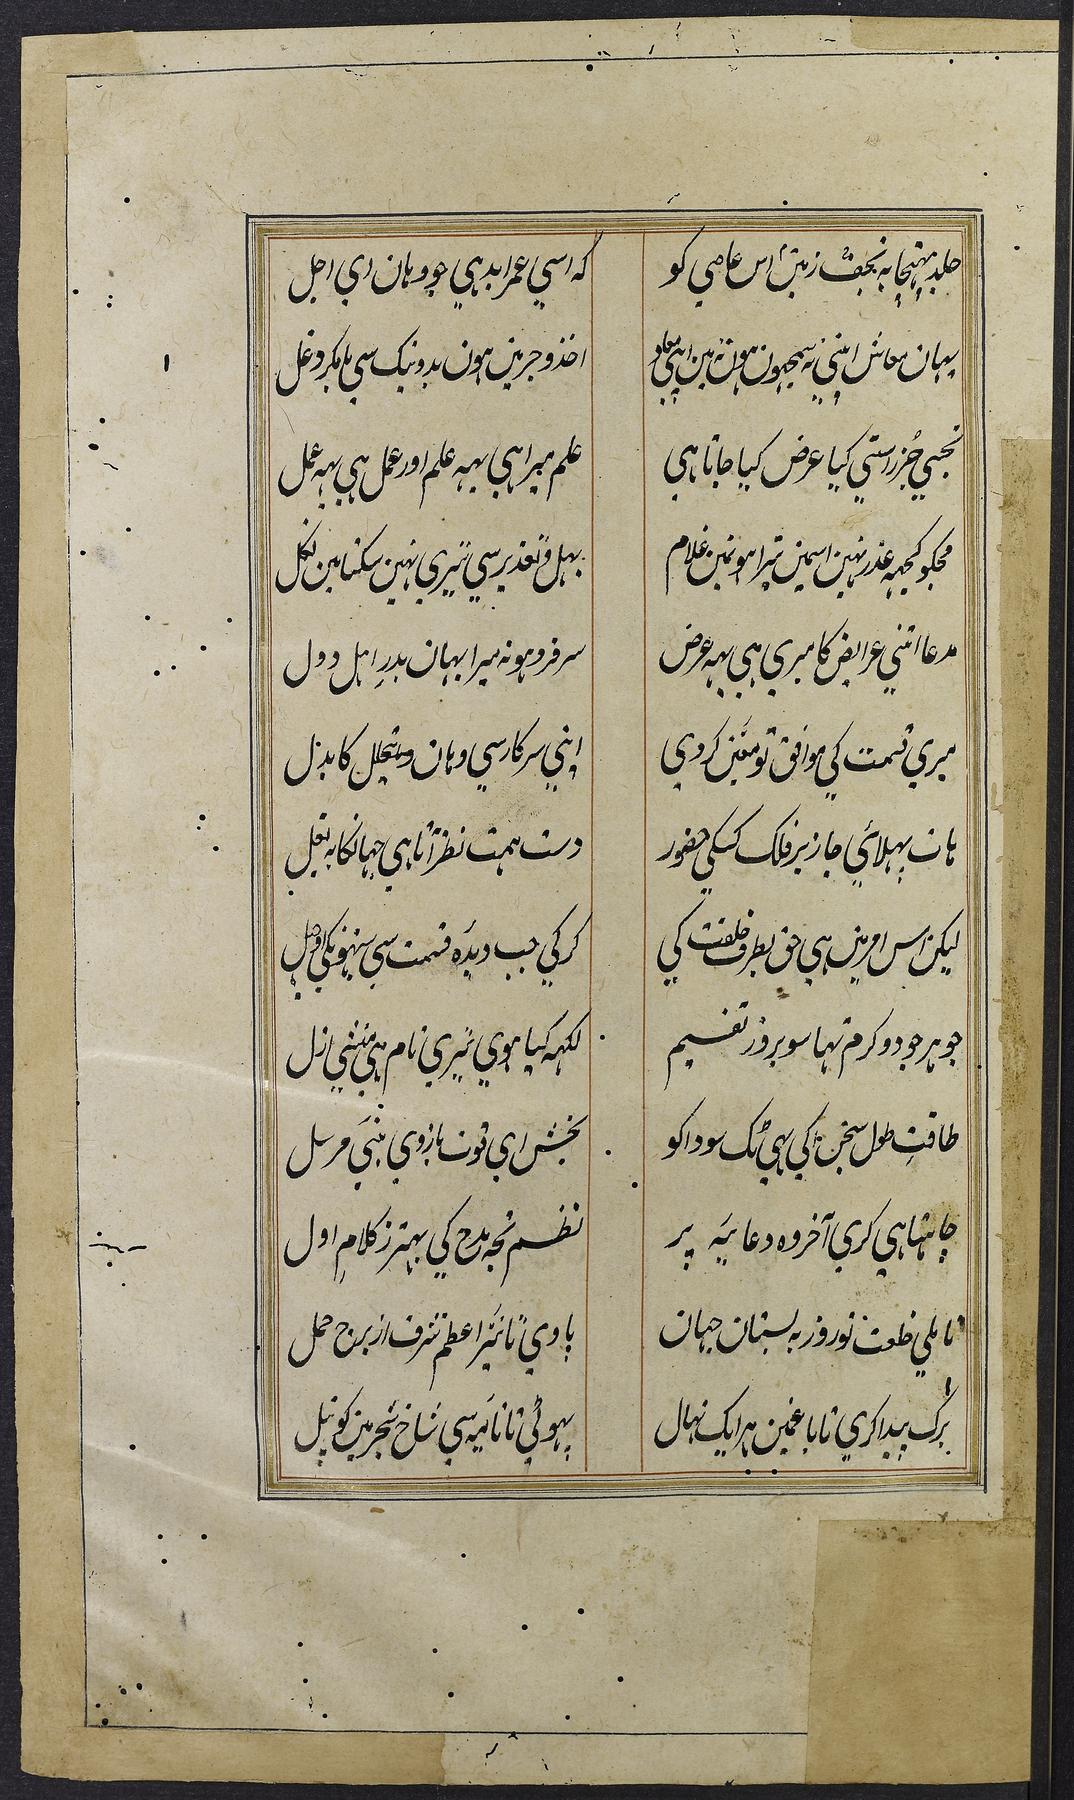 جلد پہنچا بہ نجف زمین اس عاصی کو کہ اسی عمر ابد ہی جو وہان ای اجل
یہان معاش اپنی نہ سمجہون ہون نہ مین اپنی معاد اخذ و جر مین ہون بد و نیک سی با مکر و دغل
تجہی جز راستی کیا عرض کیا جاتا ہی علم میرا ہی یہہ علم اور عمل ہی یہہ عمل
مجکو کچہہ عذر نہین اسمین تیرا ہونمین غلام تعذیر سی تیری نہین سکتا مین نکل
مدعا اتنی عرایض کا میری ہی یہہ عرض سر فرو ہو نہ میرا یہان بدر اہل دول
میری قسمت کی موافق تو معین کر دی اپنی سرکار سی وہان کا بدل
ہات پہلائی جا زیر فلک کسکی حضور دست ہمت نظر آتا ہی جہانکا بہ بغل
لیکن اس امر مین ہی حق بطرف خلقت کی کر کی جب دیدہ قسمت سی
جوہر جود و کرم تہا سو بروز تقسیم لکہہ گیا ہوی تیری نام ہی منشی ازل
طاقت طول سخن تا کی بہی ٹک سودا کو بخش ای قوت بازوی نبی مرسل
چاہتا ہی کری آخر وہ دعائیہ پر نظم تجہ مدح کی بہتر ز کلام اول
تا ملی خلعت نوروز بہ بستان جہان پاوی تا نیر اعظم شرف از برج حمل
برگ پیدا کری تا باغمین ہر ایک نہال پہوٹی تا نامیہ سی شاخ شجر مین کونپل